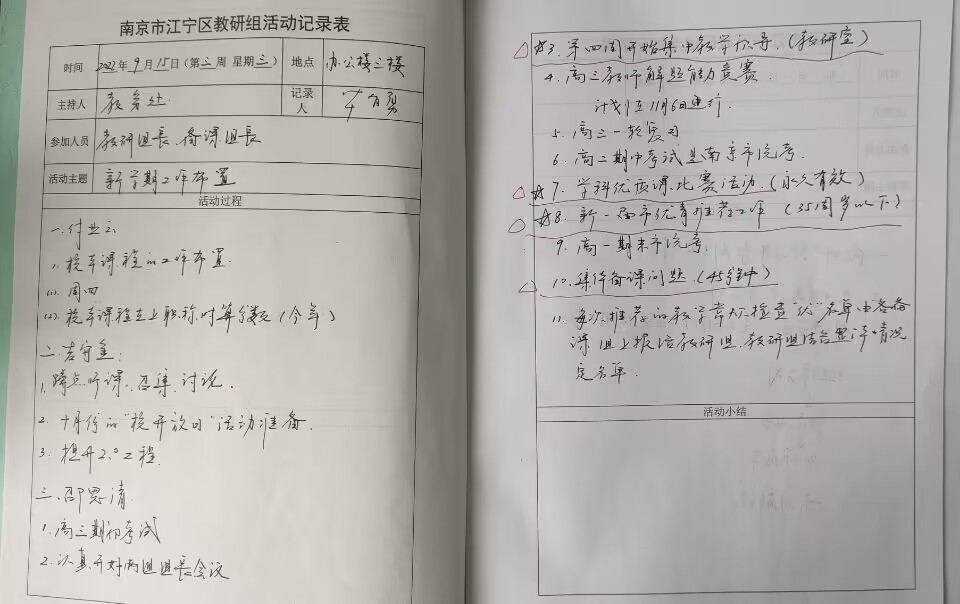 南京市江宁区教研组活动记录表
时间 2022年9月15日(第三周 星期三) 地点 办公楼三楼
主持人 教务处 记录人
参加人员 教研组长、备课组长
活动主题 新学期工作布置
活动过程
一、付业云
1. 校本课程的工作布置.
(1). 周四
(2). 校本课程在上职称时算分数(今年)
二、吉守金:
1. 蹲点听课、召集、讨论.
2. 十月份的"校开放日"活动准备.
3. 提升2.0工程.
三、邵思清
1. 高三期初考试
2. 认真开好两组组长会议
3. 第四周开始集中教学视导.(教研室)
4. 高三教师解题能力竞赛.
计划在11月6日进行.
5. 高三一轮复习
6. 高二期中考试是南京市统考.
7. 学科优质课比赛活动.(永久有效)
8. 新一届市优青推荐工作 (35周岁以下)
9. 高一期末市统考.
10. 集体备课问题(45分钟)
11. 每次推荐的教学常规检查"优"名单由各备
课组上报给教研组,教研组结合平时情况
定名单.
活动小结